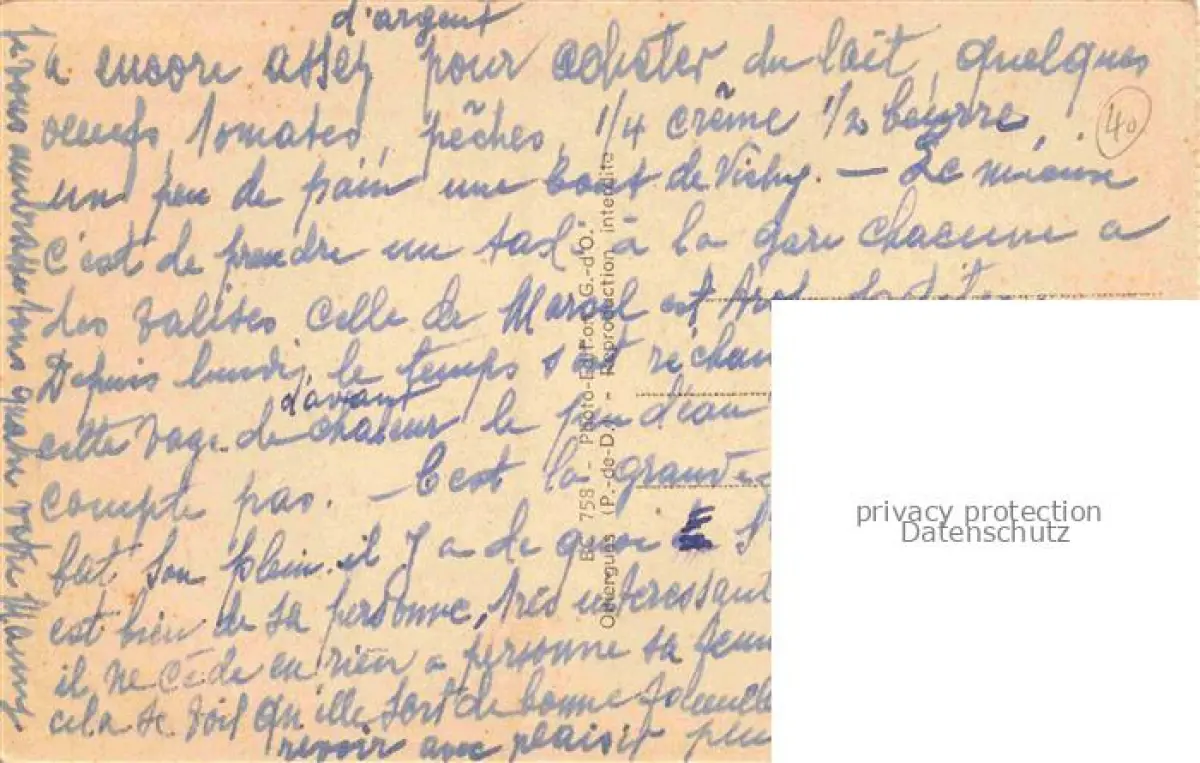 d'argent
a encore assez pour acheter du lait, quelques
oeufs, tomates, pêches, 1/4 crême 1/2 beurre,
un peu de pain une bout de Vichy. — Le mieux
c'est de prendre un taxi à la gare chacune a
des valises celle de Marcel est
Depuis lundi, le temps s'est réchau
d'avant
cette vague de chaleur le peu d'eau
compte pas. — C'est la grande
bat son plein. il y a de quoi
est bien de sa personne, très interessant
il ne cède en rien a personne sa femm
cela se voit qu'elle sort de bonne famille
revoir avec plaisir
je vous embrasse tous quatre votre Mamy
40
BC 758 - Photo-Édition G. d'O."
(P.-de-D.) - Reproduction interdite
privacy protection
Datenschutz